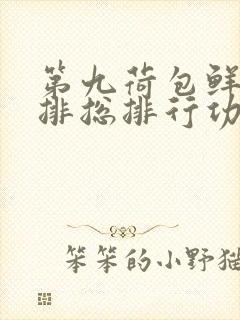 第九荷包鲜
排捴排行功
笨笨的小野猫